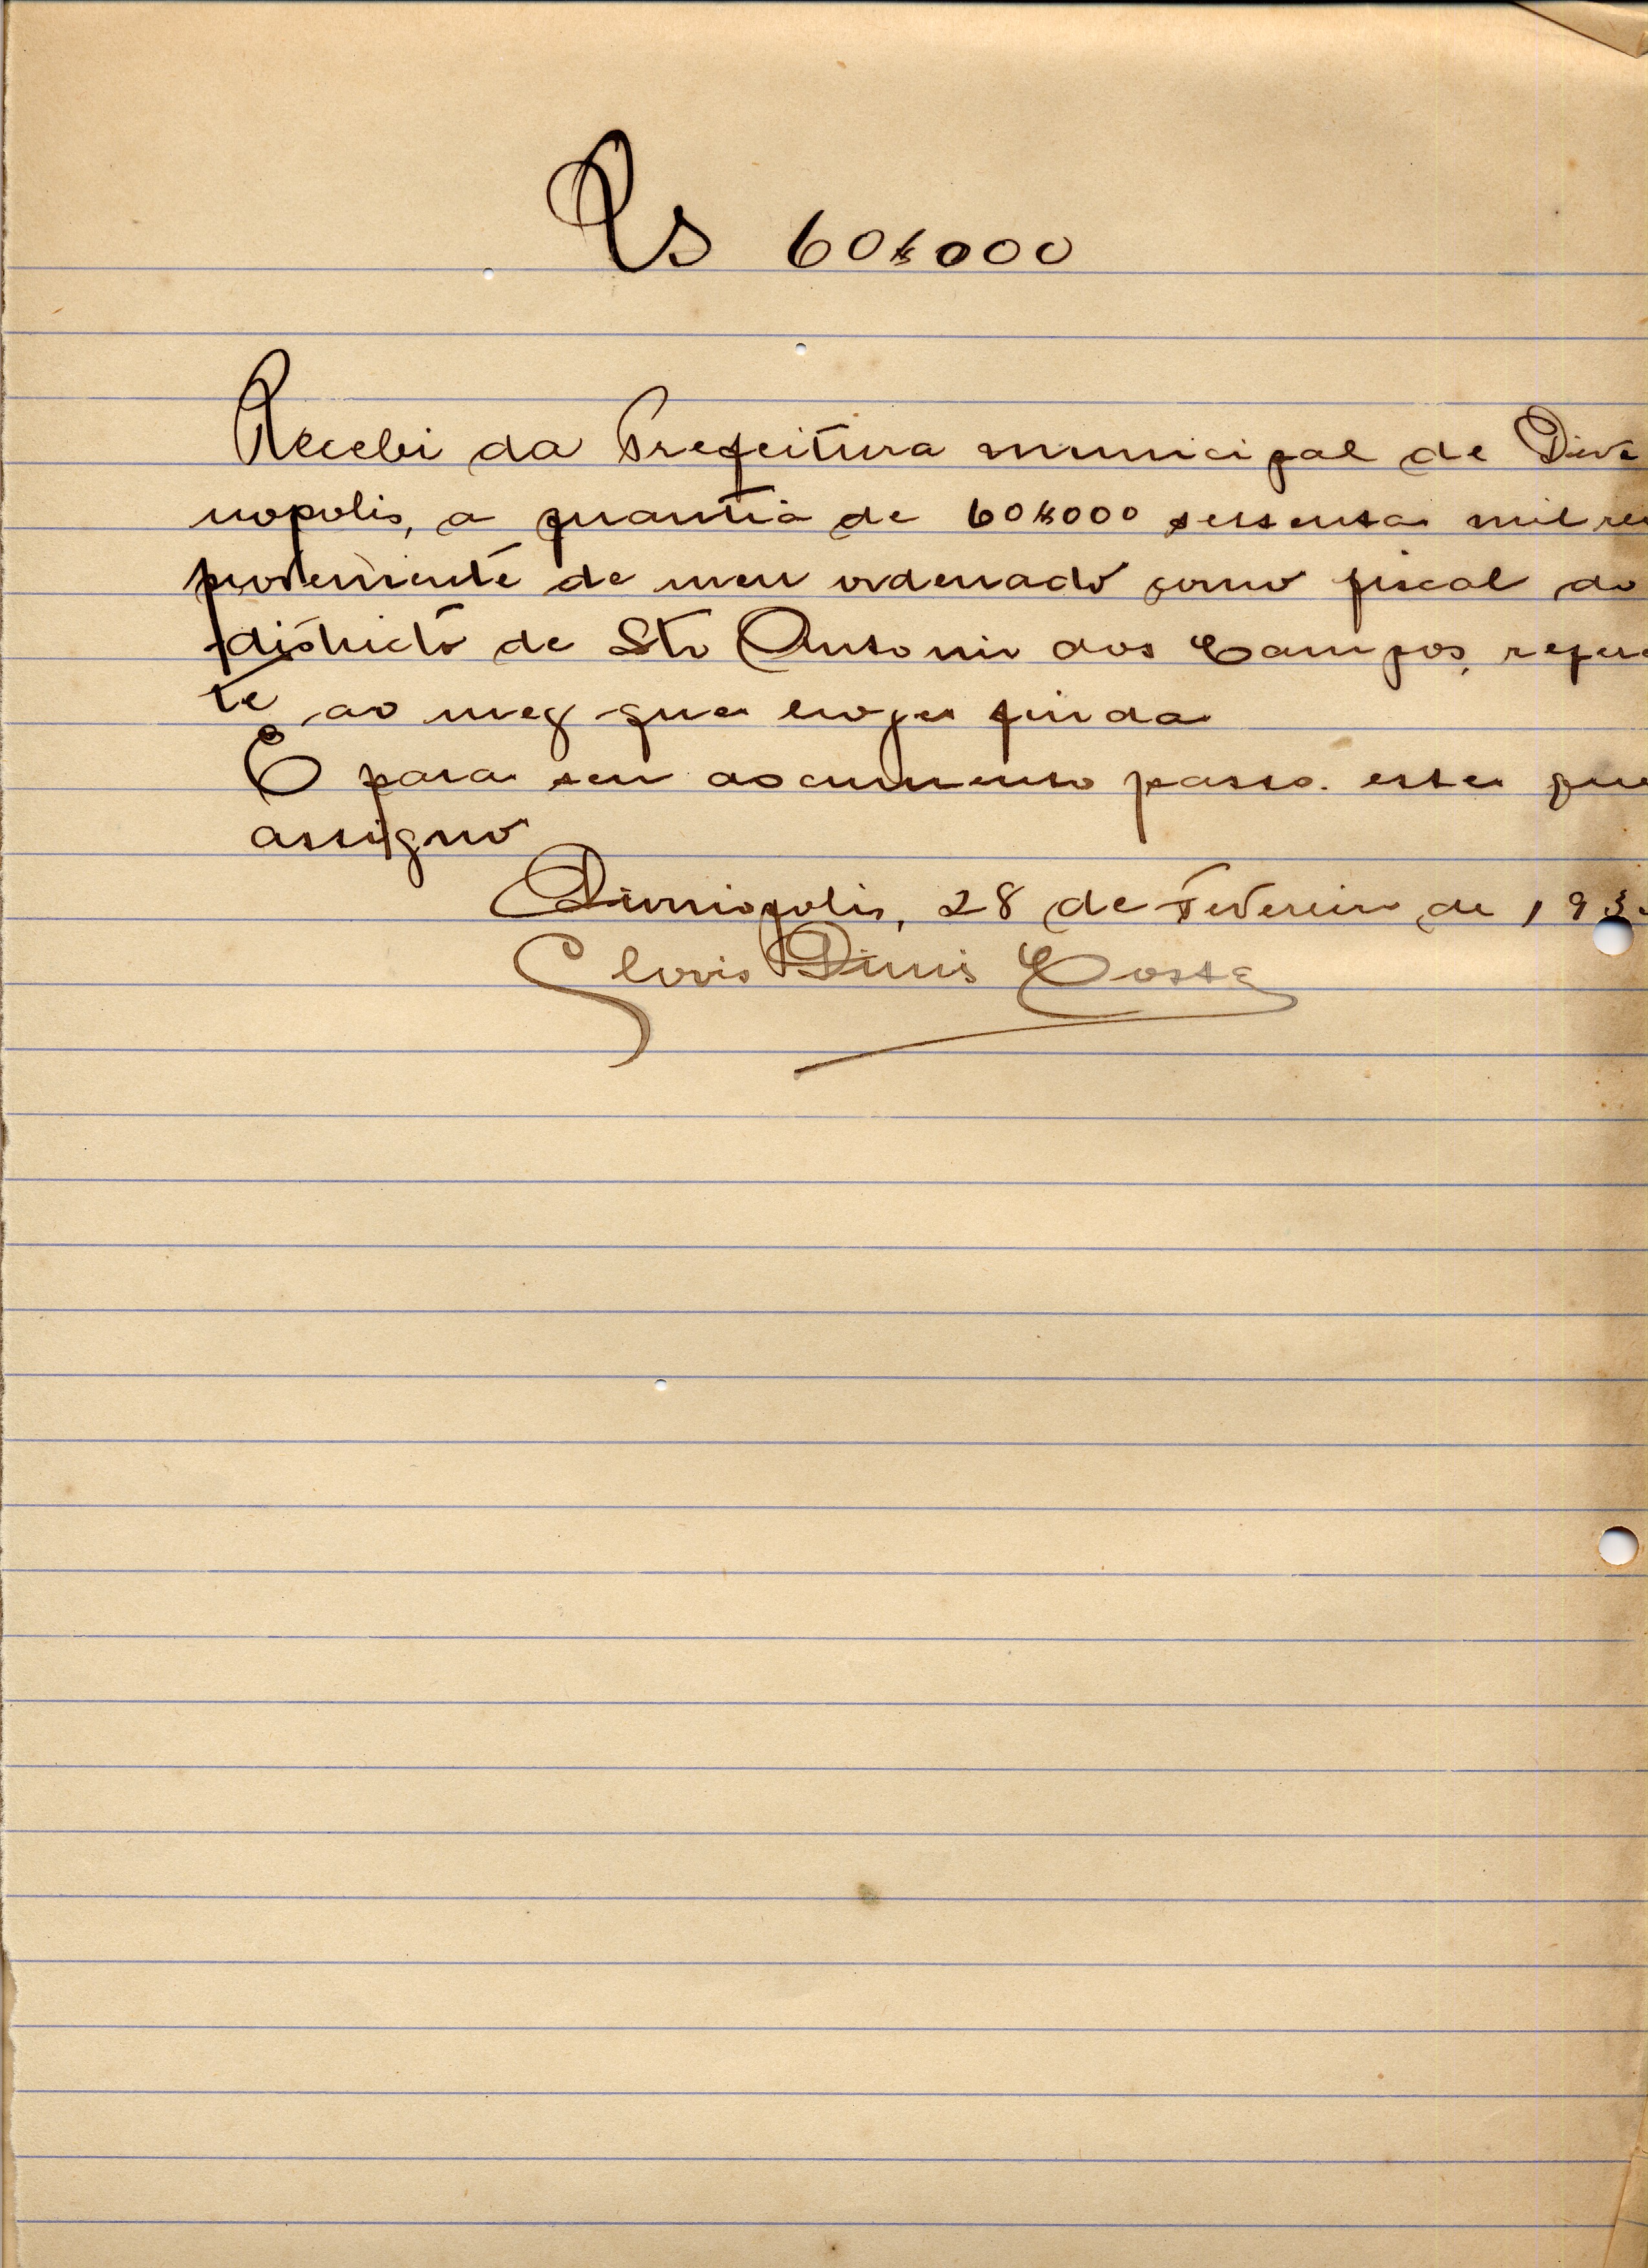 Rs 60$000
Recebi da Prefeitura municipal de Divi
nopolis, a quantia de 60$000 sessenta mil reis
proveniente de meu ordenado como fiscal do
districto de Sto Antonio dos Campos, referen
te ao mez que hoje finda
E para seu documento passo este que
assigno
Divinopolis, 28 de Fevereiro de 193
Clovis Dinis Costa